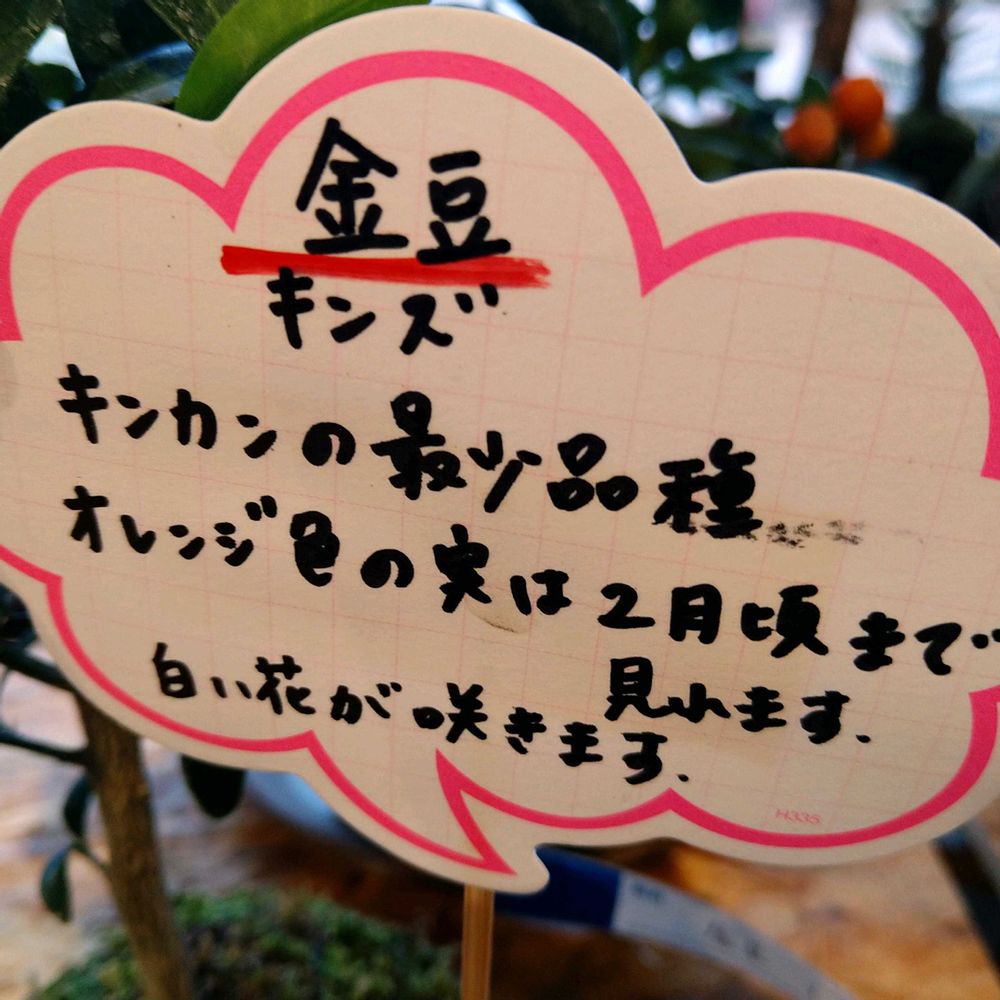 金豆
キンズ
キンカンの最少品種
オレンジ色の実は2月頃まで
見れます.
白い花が咲きます.
H335